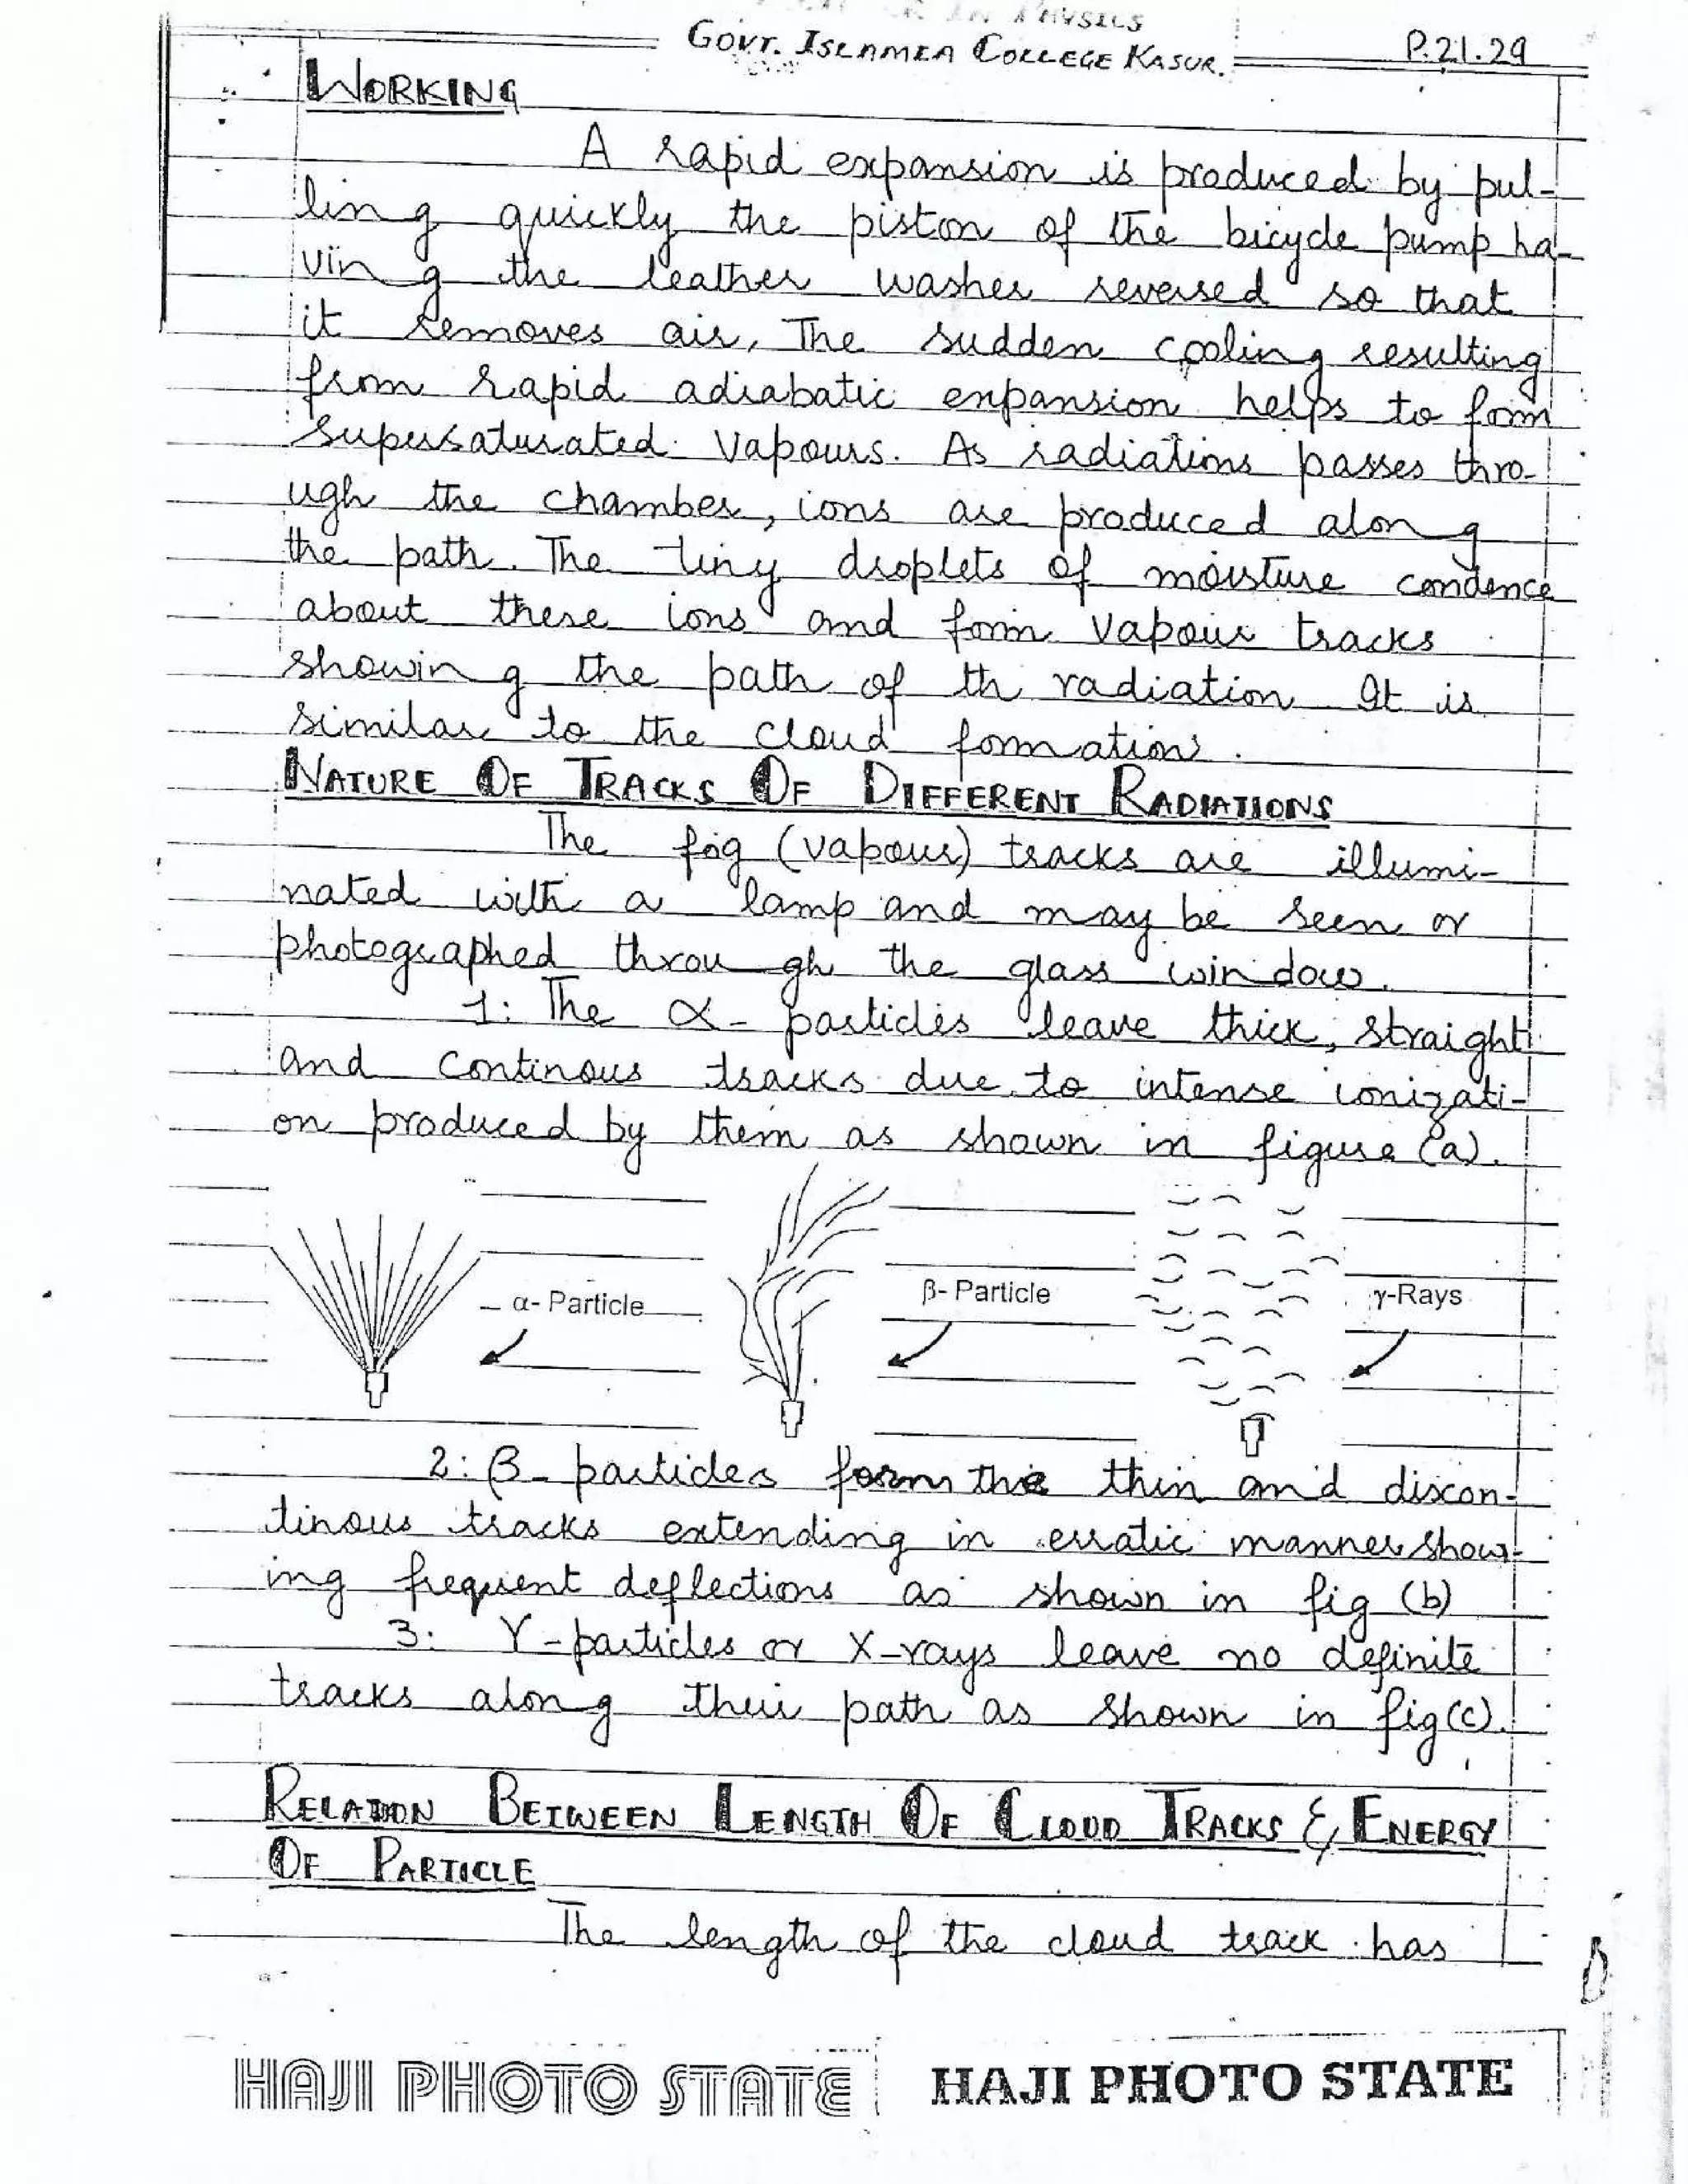 IN PHYSICS
GOVT. ISLAMIA COLLEGE KASUR.
P.21.29
WORKING
A rapid expansion is produced by pul-
ling quickly the piston of the bicycle pump ha-
ving the leather washer reversed so that
it removes air, The sudden cooling resulting
from rapid adiabatic expansion helps to form
supersaturated vapours. As radiations passes thro-
ugh the chamber, ions are produced along
the path. The tiny droplets of moisture condence
about these ions and form vapour tracks
showing the path of th radiation It is
similar to the cloud formation.
NATURE OF TRACKS OF DIFFERENT RADIATIONS
The fog (vapour) tracks are illumi-
nated with a lamp and may be seen or
photographed through the glass window.
1: The α- particles leave thick, straight
and continous tracks due to intense ionizati-
on produced by them as shown in figure (a).
α- Particle
β- Particle
γ-Rays
2: β- particles form the thin and discon-
tinous tracks extending in erratic manner show-
ing frequent deflections as shown in fig (b)
3: γ-particles or X-rays leave no definite
tracks along their path as shown in fig(c).
RELATION BETWEEN LENGTH OF CLOUD TRACKS & ENERGY
OF PARTICLE
The length of the cloud track has
HAJI PHOTO STATE
HAJI PHOTO STATE